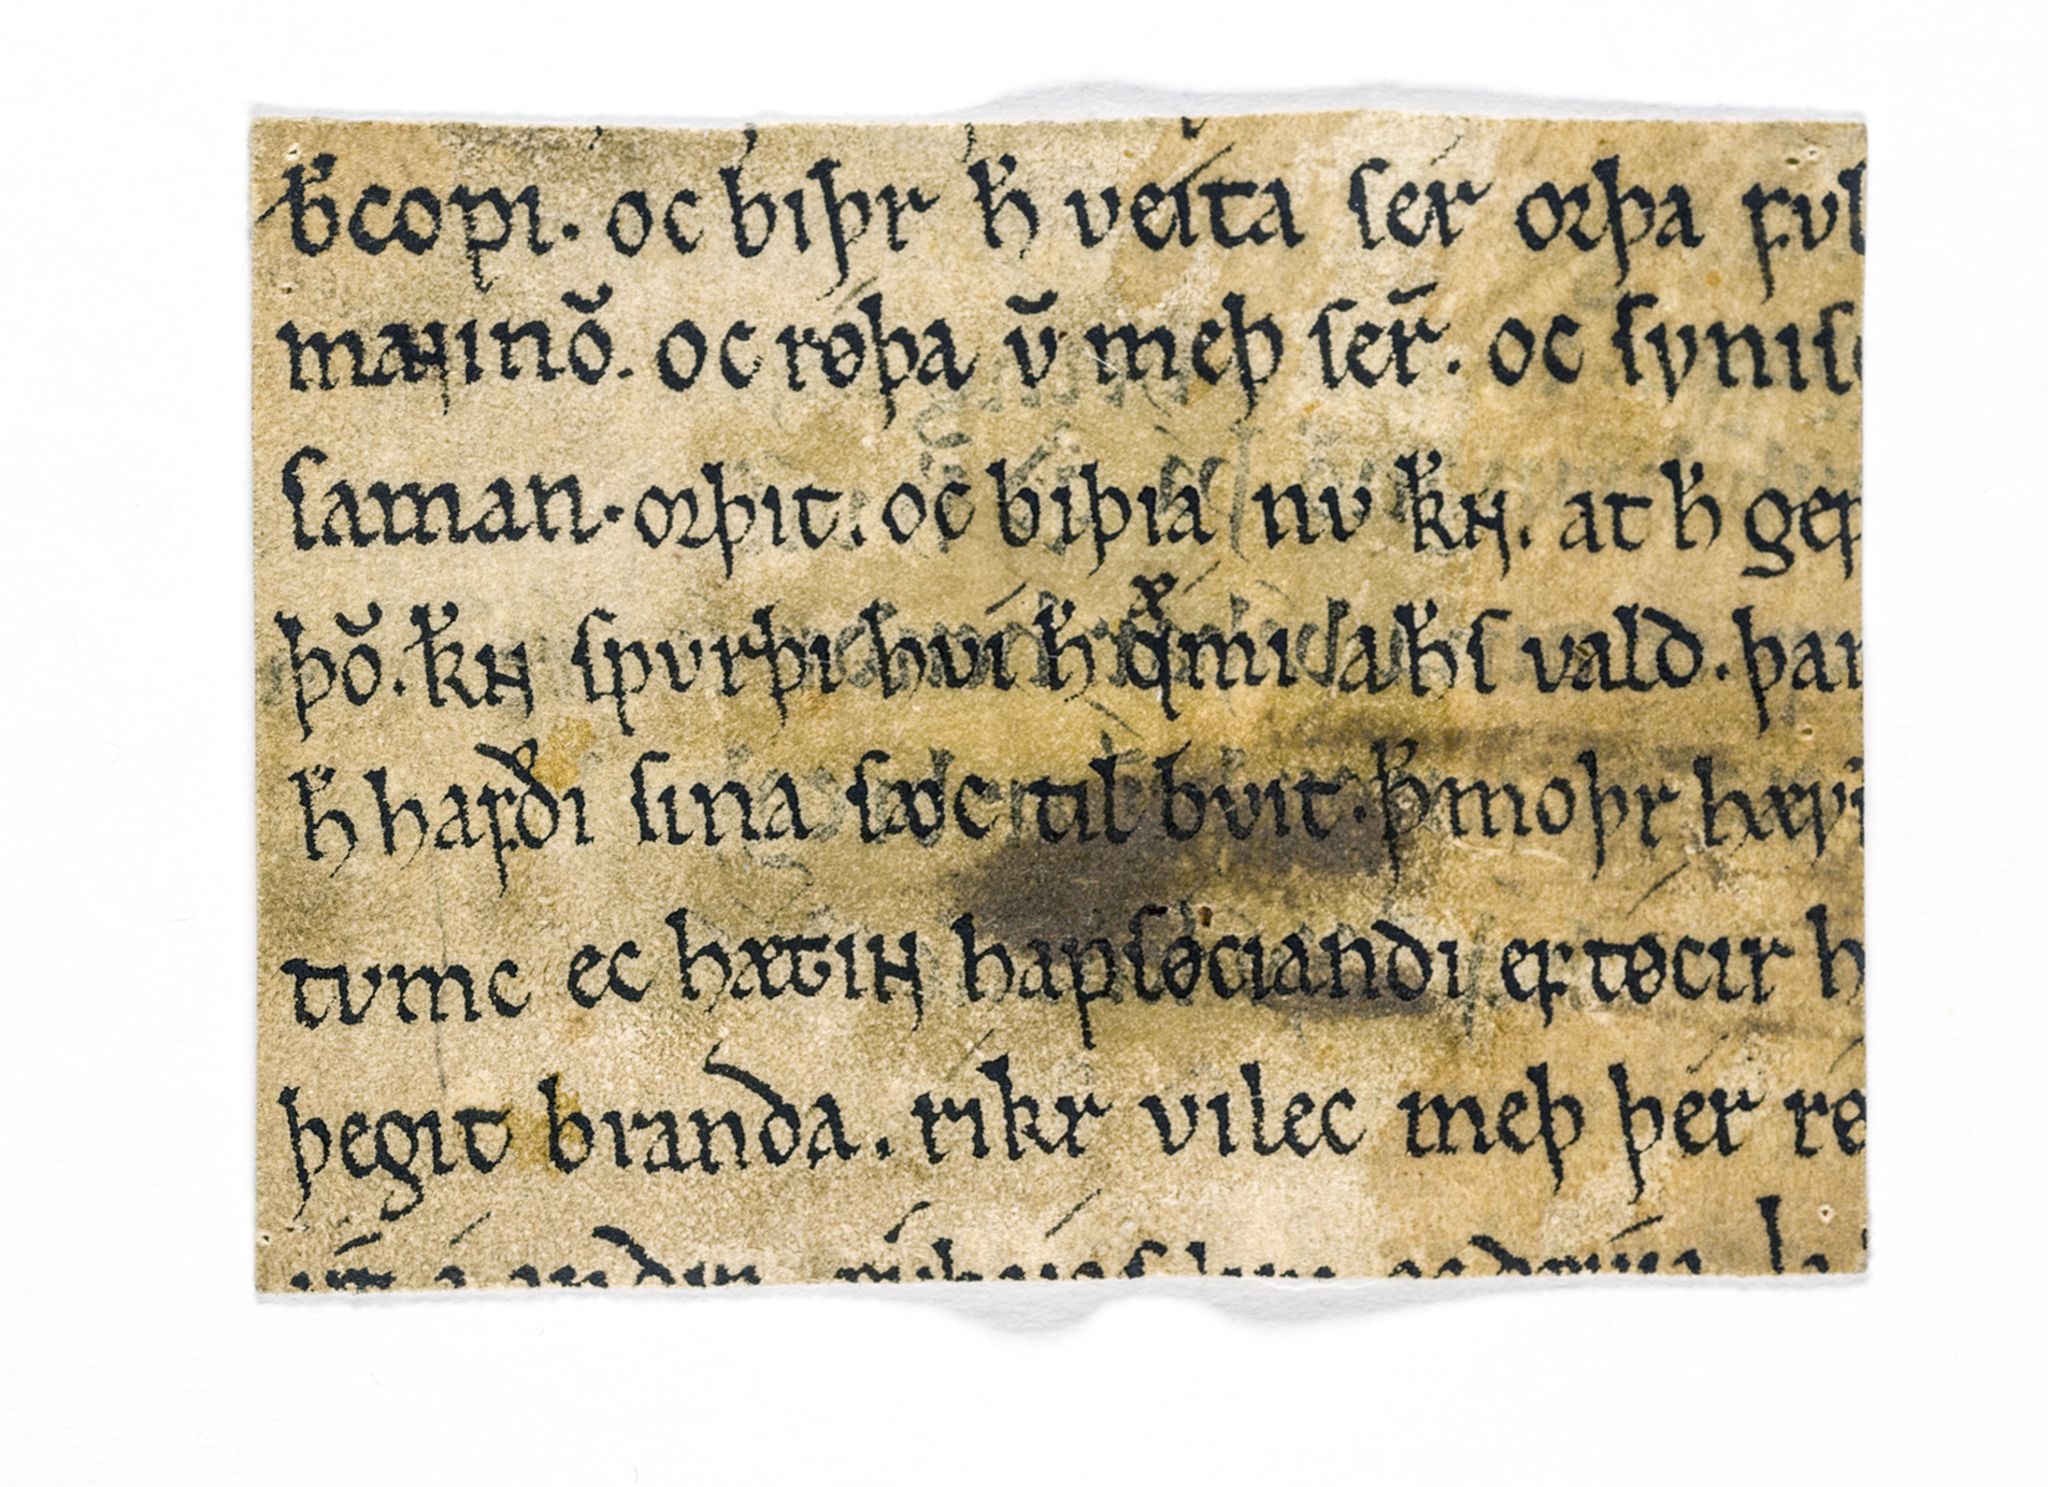 b̄ꞅcopi. oc biþr h̄ veíta ſér oꝛþa fvl
maɴinō. oc røþa v̄ meþ ſér̄. oc ſyniſc
ſaman. oꝛþit. oc biþia nv k̄ɴ. at h̄ gep
þō. k̄ɴ ſpvrþi hví h̄ qͣmi a h̄ſ vald. þar
h̄ hafði ſina ſꜵc til bvit. þ̄ moþr hæv
tvmc ec hætiɴ hapſøciandi eftøcir h
þegit branda. ríkr vilec meþ þér rø